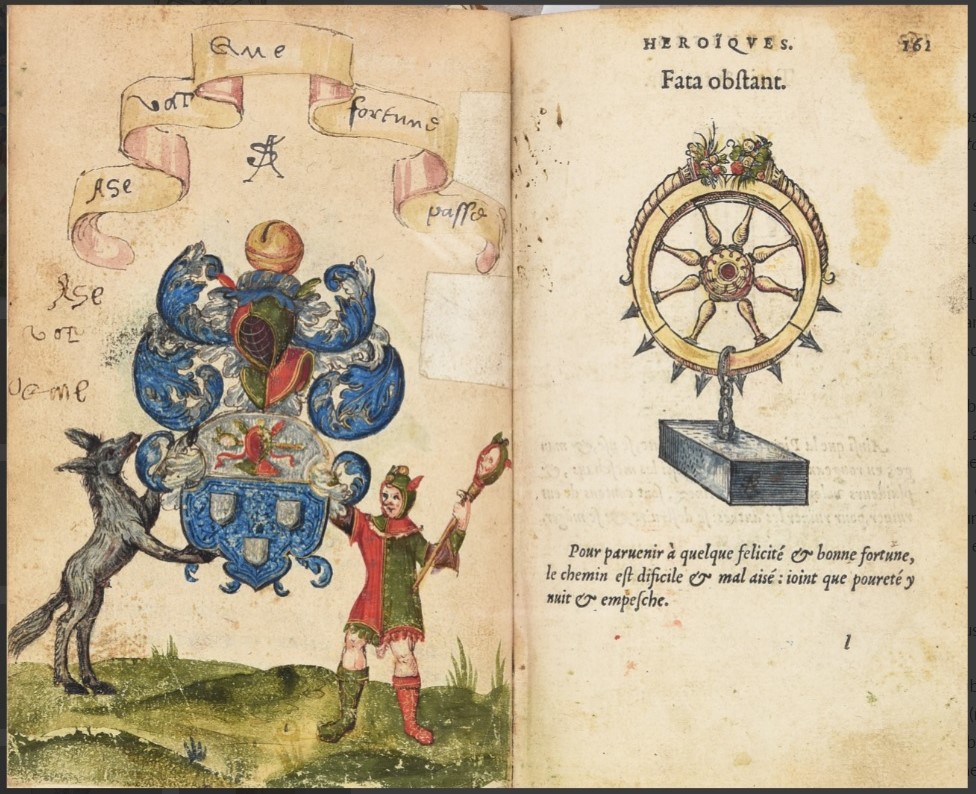 Ase vot Que fortune passe
Ase
vot
HEROÏQVES. 161
Fata obſtant.
Pour paruenir à quelque felicité & bonne fortune,
le chemin eſt dificile & mal aisé : ioint que poureté y
nuit & empeſche.
l